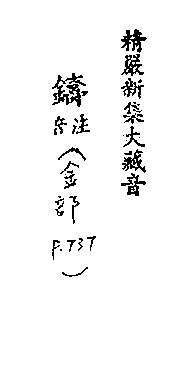 精嚴新集大藏音
鑄注
(金部
P.737)